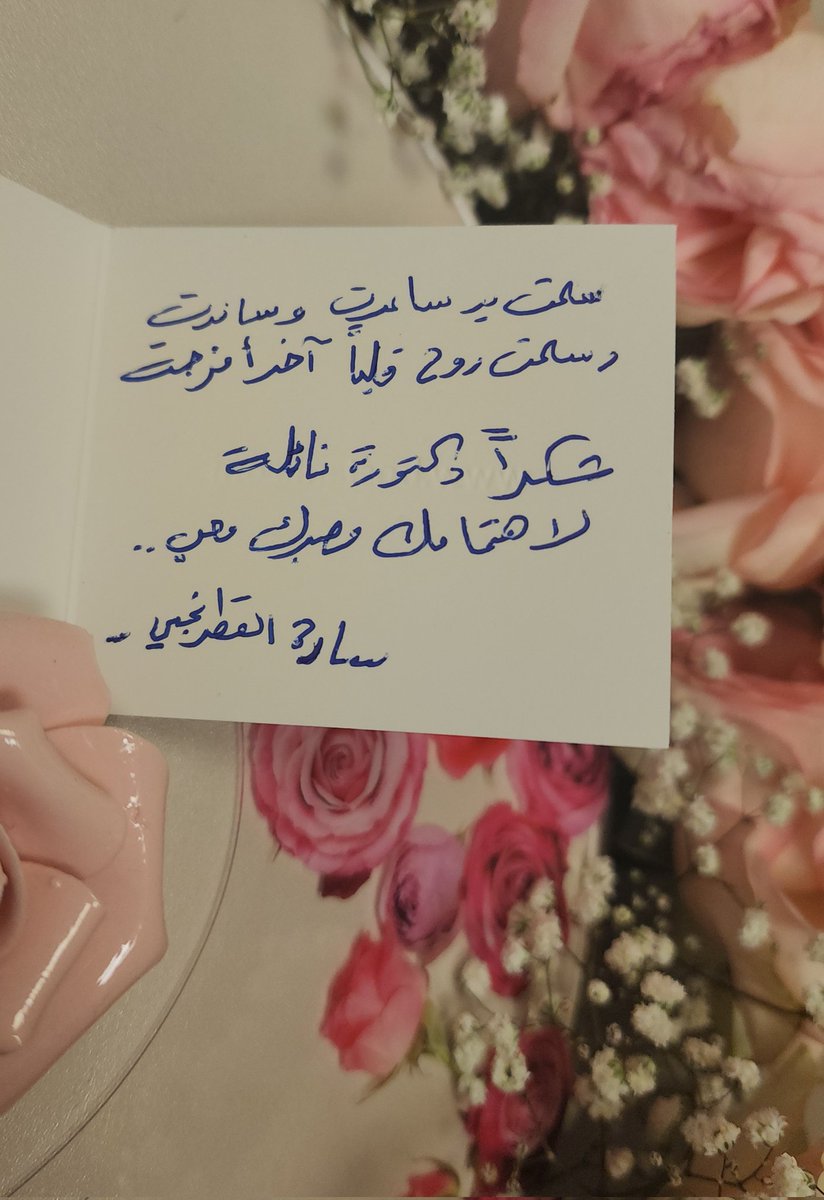 سلمت يد ساعدت وساندت
وسلمت روح قلباً آخر أفرحت
شكراً دكتورة نائلة
لاهتمامك وصبرك معي ..
سارة القطرنجي